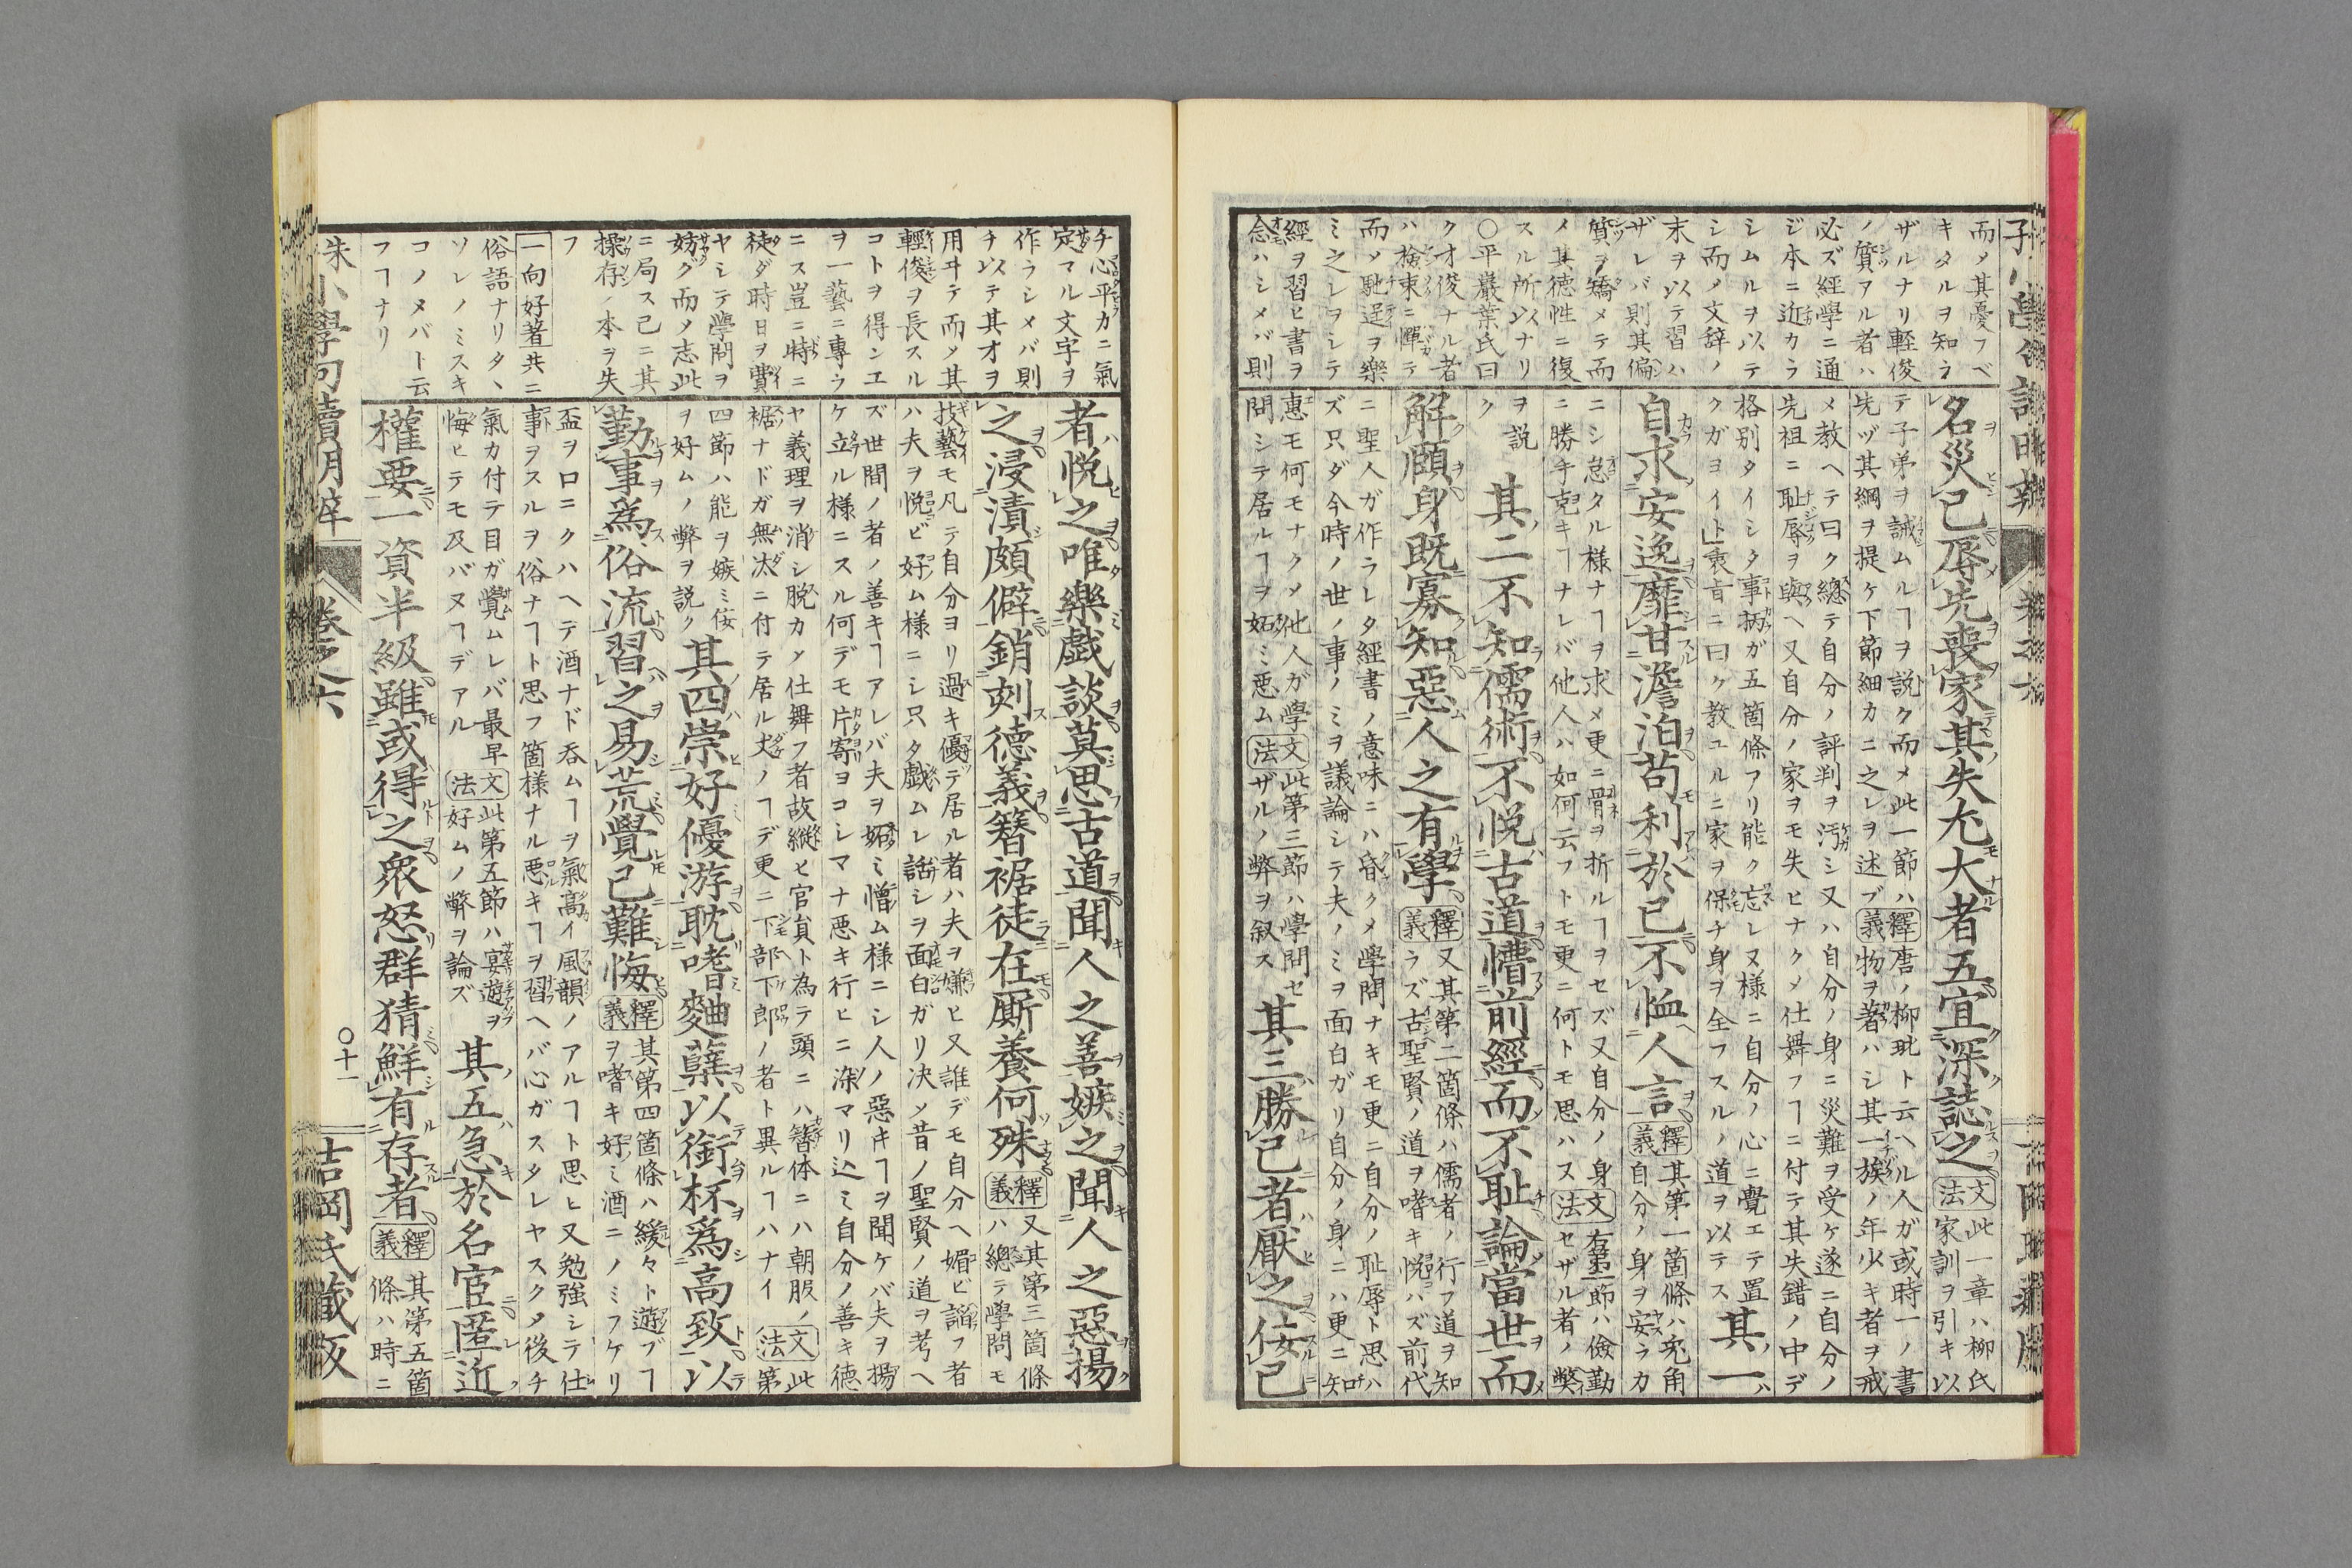 而〆其憂フベ
キタルヲ知ラ
ザルナリ輕俊
ノ質アル者ハ
必ズ經學ニ通
ジ本ニ近カラ
シムルヲ以テ
シ而〆文辞ノ
末ヲ以テ習ハ
ザレバ則其偏
質ヲ矯メテ而
〆其徳性ニ復
スル所以ナリ
○平巖葉氏曰
ク才俊ナル者
ハ檢束ニ憚テ
而〆馳逞ヲ樂
ミ之レヲシテ
經ヲ習ヒ書ヲ
念ハシメバ則
名災己辱先喪家其失尤大者五宜深誌之
文法 此一章ハ柳氏
家訓ヲ引キ以
テ子弟ヲ誡ムルヿヲ説ク而〆此一節ハ
先ヅ其綱ヲ提ケ下節細カニ之レヲ述ブ
釋義 唐ノ柳玭ト云ヘル人ガ或時一ノ書
物ヲ著ハシ其一族ノ年少キ者ヲ戒
メ教ヘテ曰ク總テ自分ノ評判ヲ汚シ又ハ自分ノ身ニ災難ヲ受ケ遂ニ自分ノ
先祖ニ耻辱ヲ與ヘ又自分ノ家ヲモ失ヒナク〆仕舞フヿニ付テ其失錯ノ中デ
格別タイシタ事抦ガ五箇條アリ能ク忘レヌ様ニ自分ノ心ニ覺エテ置
クガヨイト」衷旨ニ曰ク教ユルニ家ヲ保チ身ヲ全フスルノ道ヲ以テス
其一
自求安逸靡甘澹泊苟利於己不恤人言
釋義 其第一箇條ハ兎角
自分ノ身ヲ安ラカ
ニシ怠タル様ナヿヲ求メ更ニ骨ヲ折ルヿヲセズ又自分ノ身
ニ勝手剋キヿナレバ他人ハ如何云フトモ更ニ何トモ思ハヌ
文法 右第一節ハ儉勤
セザル者ノ獘
ヲ説
ク
其二不知儒術不悦古道懵前經而不耻論當世而
解頤身既寡知惡人之有學
釋義 又其第二箇條ハ儒者ノ行フ道ヲ知
ラズ古聖賢ノ道ヲ嗜キ悦ハズ前代
ニ聖人ガ作ラレタ經書ノ意味ニハ昏ク〆學問ナキモ更ニ自分ノ耻辱ト思ハ
ズ只ダ今時ノ世ノ事ノミヲ議論シテ夫ノミヲ面白ガリ自分ノ身ニハ更ニ知
惠モ何モナク〆他人ガ學
問シテ居ルヿヲ妬ミ悪ム
文法 此第三節ハ學問セ
ザルノ弊ヲ叙ス
其三勝己者厭之佞己
チ心平カニ氣
定マル文字ヲ
作ラシメバ則
チ以テ其才ヲ
用ヰテ而〆其
輕俊ヲ長スル
コトヲ得ンエ
ヲ一藝ニ專ラ
ニス豈ニ時ニ
徒ダ時日ヲ費
ヤシテ學問ヲ
妨グ而〆志此
ニ局ス己ニ其
操存ノ本ヲ失
フ
一向好著 共ニ
俗語ナリタヽ
ソレノミスキ
コノ〆バト云
フヿナリ
者悦之唯樂戯談莫思古道聞人之善嫉之聞人之惡揚
之浸漬頗僻銷刻德義簪裾徒在厮養何殊
釋義 又其第三箇條
ハ總テ學問モ
技藝モ凡テ自分ヨリ過キ優テ居ル者ハ夫ヲ嫌ヒ又誰デモ自分ヘ媚ビ謟フ者
ハ夫ヲ悦ビ好ム様ニシ只タ戯ムレ話シヲ面白ガリ決〆昔ノ聖賢ノ道ヲ考ヘ
ズ世間ノ者ノ善キヿアレバ夫ヲ妬ミ憎ム様ニシ人ノ惡キヿヲ聞ケバ夫ヲ揚
ケ立ル様ニスル何デモ片寄ヨコシマナ悪キ行ヒニ染マリ込ミ自分ノ善キ徳
ヤ義理ヲ消シ脱カ〆仕舞フ者故縦ヒ官貟ト為テ頭ニハ簪体ニハ朝服ノ
裾ナドガ無汰ニ付テ居ル𠀋ノヿデ更ニ下部下郎ノ者ト異ルヿハナイ
文法 此
第
四節ハ能ヲ嫉ミ佞
ヲ好ムノ弊ヲ説ク
其四崇好優游耽嗜麯糱以銜杯爲高致以
勤事為俗流習之易荒覺已難悔
釋義 其第四箇條ハ緩々ト遊ブヿ
ヲ嗜キ好ミ酒ニノミフケリ
盃ヲロニクハヘテ酒ナド呑ムヿヲ氣高イ風韻ノアルヿト思ヒ又勉強シテ仕
事ヲスルヲ俗ナヿト思フ箇様ナル悪キヿヲ習ヘバ心ガスタレヤスク〆後チ
氣カ付テ目ガ覺ムレバ最早
悔ヒテモ及バヌヿデアル
文法 此第五節ハ宴遊ヲ
好ムノ弊ヲ論ズ
其五急於名宦匿近
權要一資半級雖或得之衆怒群猜鮮有存者
釋義 其第五箇
條ハ時ニ
朱小學句讀明辨
卷之六
〇十一
吉岡氏藏版